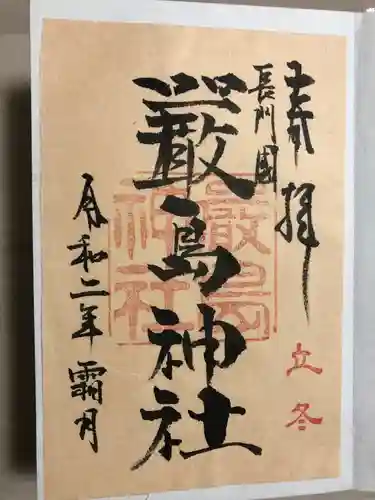 奉拝
立冬
長門國
嚴島神社
嚴島
神社
令和二年 霜月